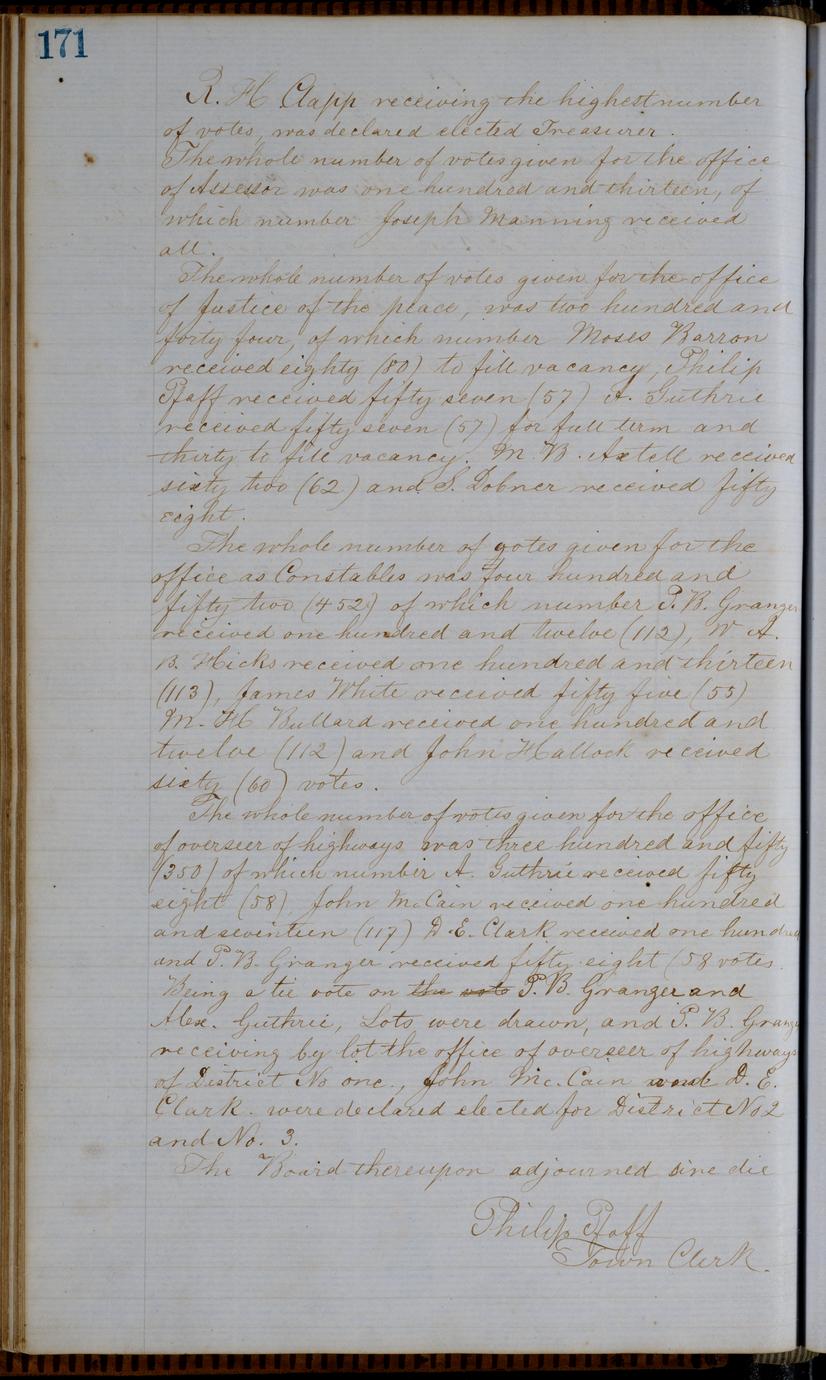 171
R. H Clapp receiving the highest number
of votes, was declared elected Treasurer.
The whole number of votes given for the office
of Assessor was one hundred and thirteen, of
which number Joseph Manning received
all.
The whole number of votes given for the office
of Justice of the peace, was two hundred and
forty four, of which number Moses Barron
received eighty (80) to fill vacancy, Philip
Pfaff received fifty seven (57) A. Guthrie
received fifty seven (57) for full term and
thirty to fill vacancy. M. B. Axtell received
sixty two (62) and S. Dobner received fifty
eight.
The whole number of votes given for the
office as Constables was four hundred and
fifty two (452) of which number P. B. Granger
received one hundred and twelve (112), W A.
B. Hicks received one hundred and thirteen
(113), James White received fifty five (55)
M. H Bullard received one hundred and
twelve (112) and John Hallock received
sixty (60) votes.
The whole number of votes given for the office
of overseer of highways was three hundred and fifty
(350) of which number A. Guthrie received fifty
eight (58), John McCain received one hundred
and seventeen (117) D. E. Clark received one hundred
and P. B. Granger received fifty eight (58 votes.
Being a tie vote on the vote P. B. Granger and
Alex. Guthrie, Lots were drawn, and P. B. Granger
receiving by lot the office of overseer of highways
of District No one., John Mc.Cain D. E.
Clark. were declared elected for District No 2
and No. 3.
The Board thereupon adjourned sine die
Philip Pfaff
Town Clerk.